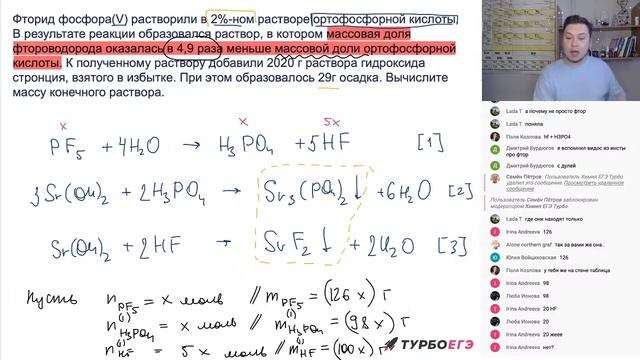 Фторид фосфора(V) растворили в 2%-ном растворе ортофосфорной кислоты.
В результате реакции образовался раствор, в котором массовая доля
фтороводорода оказалась в 4,9 раза меньше массовой доли ортофосфорной
кислоты. К полученному раствору добавили 2020 г раствора гидроксида
стронция, взятого в избытке. При этом образовалось 29г осадка. Вычислите
массу конечного раствора.
x x 5x
PF5 + 4H2O → H3PO4 + 5HF [1]
3Sr(OH)2 + 2H3PO4 → Sr3(PO4)2↓ + 6H2O [2]
Sr(OH)2 + 2HF → SrF2↓ + 2H2O [3]
Пусть nPF5 = x моль // mPF5 = (126x) г
n(1)H3PO4 = x моль // m(1)H3PO4 = (98x) г
n(1)HF = 5x моль // m(1)HF = (100x) г
ТУРБОЕГЭ
Lada T а почему не просто фтор
Lada T поняла
Поля Козлова hf + H3PO4
Дмитрий Бурдюгов я вспомнил видос из инсты
про фтор
Дмитрий Бурдюгов с дулей
Семён Пётров Пользователь Химия ЕГЭ Турбо
удалил это сообщение. Просмотреть удаленное
сообщение
Пользователь Семён Пётров заблокирован
модератором Химия ЕГЭ Турбо.
Lada T где они находят только
Irina Andreeva 126
Alone northern graf так за вами же она..
Юлия Войцеховская 126
Поля Козлова у тебя же на стене таблица
Irina Andreeva 98
Люба Ионова 98
Irina Andreeva 20 HF
Люба Ионова 20
Irina Andreeva 20 жеее
Irina Andreeva нет?